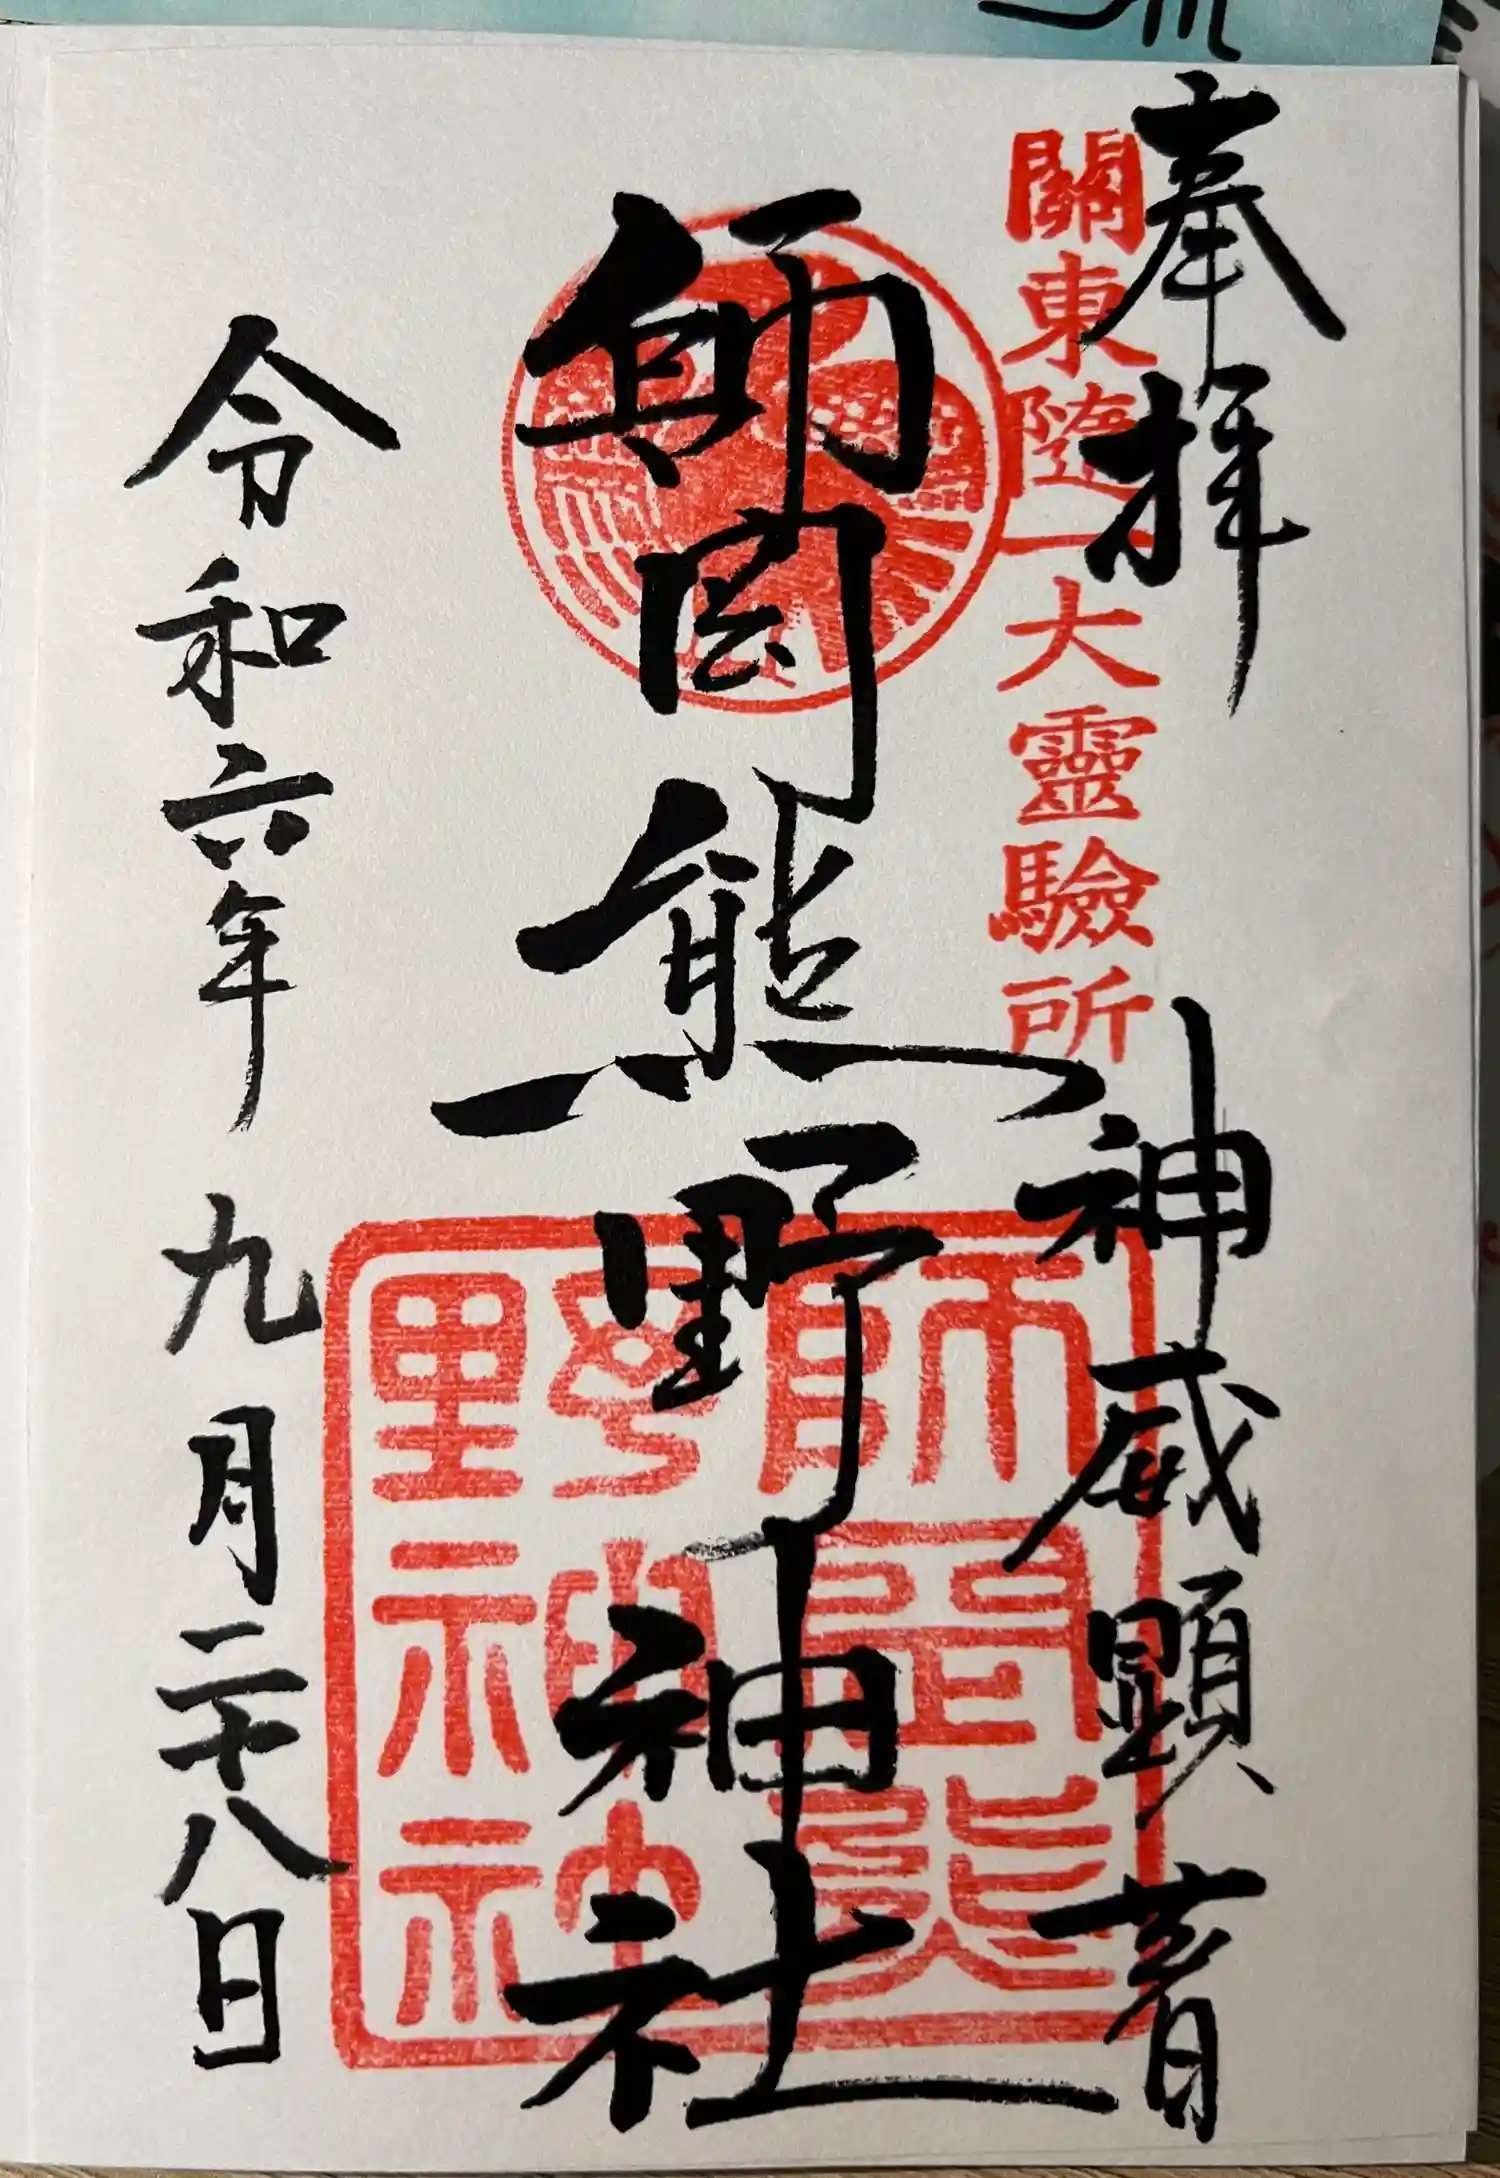 奉拝
神威顕著
關東隨一大靈驗所
師岡熊野神社
師岡熊野神社
令和六年九月二十八日